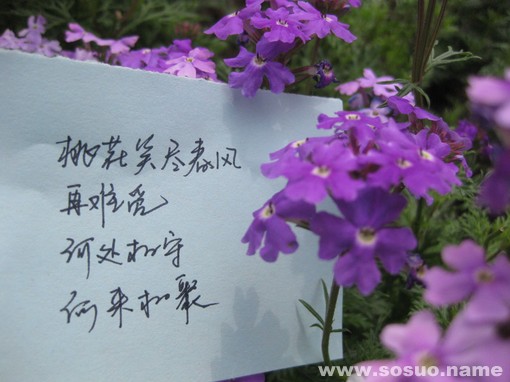 桃花笑尽春风
再难觅
何处相守
何来相聚
www.sosuo.name